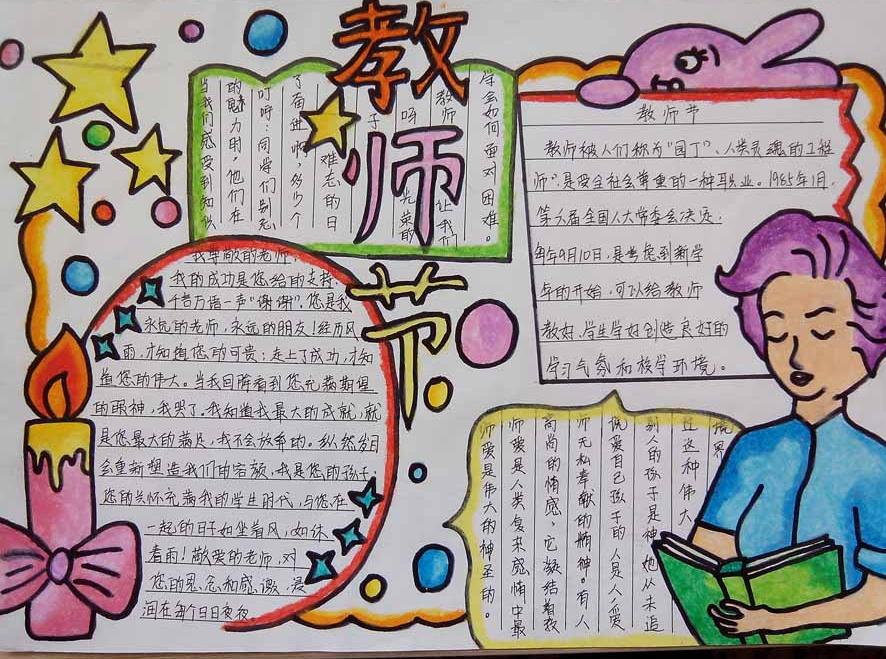 教师节
当我们感受到知识
的魅力时，他们在
叮咛：同学们别忘
了奋进啊，多少个
难忘的日
子
呀
光荣的
教师
让我们
学会如何面对困难。
教师节
教师被人们称为“园丁”、人类灵魂的工程
师”，是受全社会尊重的一种职业。1985年1月，
第六届全国人大常委会决定：
每年9月10日，是考虑到新学
年的开始，可以给教师
教好、学生学好创造良好的
学习气氛和校学环境。
我尊敬的老师
我的成功是您给的支持，
千言万语一声“谢谢”。您是我
永远的老师，永远的朋友！经历风
雨，才知道您的可贵；走上了成功，才知
道您的伟大。当我回眸看到您充满期望
的眼神，我哭了。我知道我最大的成就，就
是您最大的满足，我不会放弃的。纵然岁月
会重新塑造我们的容颜，我是您的孩子；
您的关怀充满我的学生时代，与您在
一起的日子如坐着风，如沐
着雨！敬爱的老师，对
您的思念和感激，浸
润在每个日日夜夜
师爱是伟大的神圣的。
师爱是人类复杂感情中最
高尚的情感，它凝结着教
师无私奉献的精神。有人
说爱自己孩子的人是人，爱
别人的孩子是神，她从未追
过这种伟大